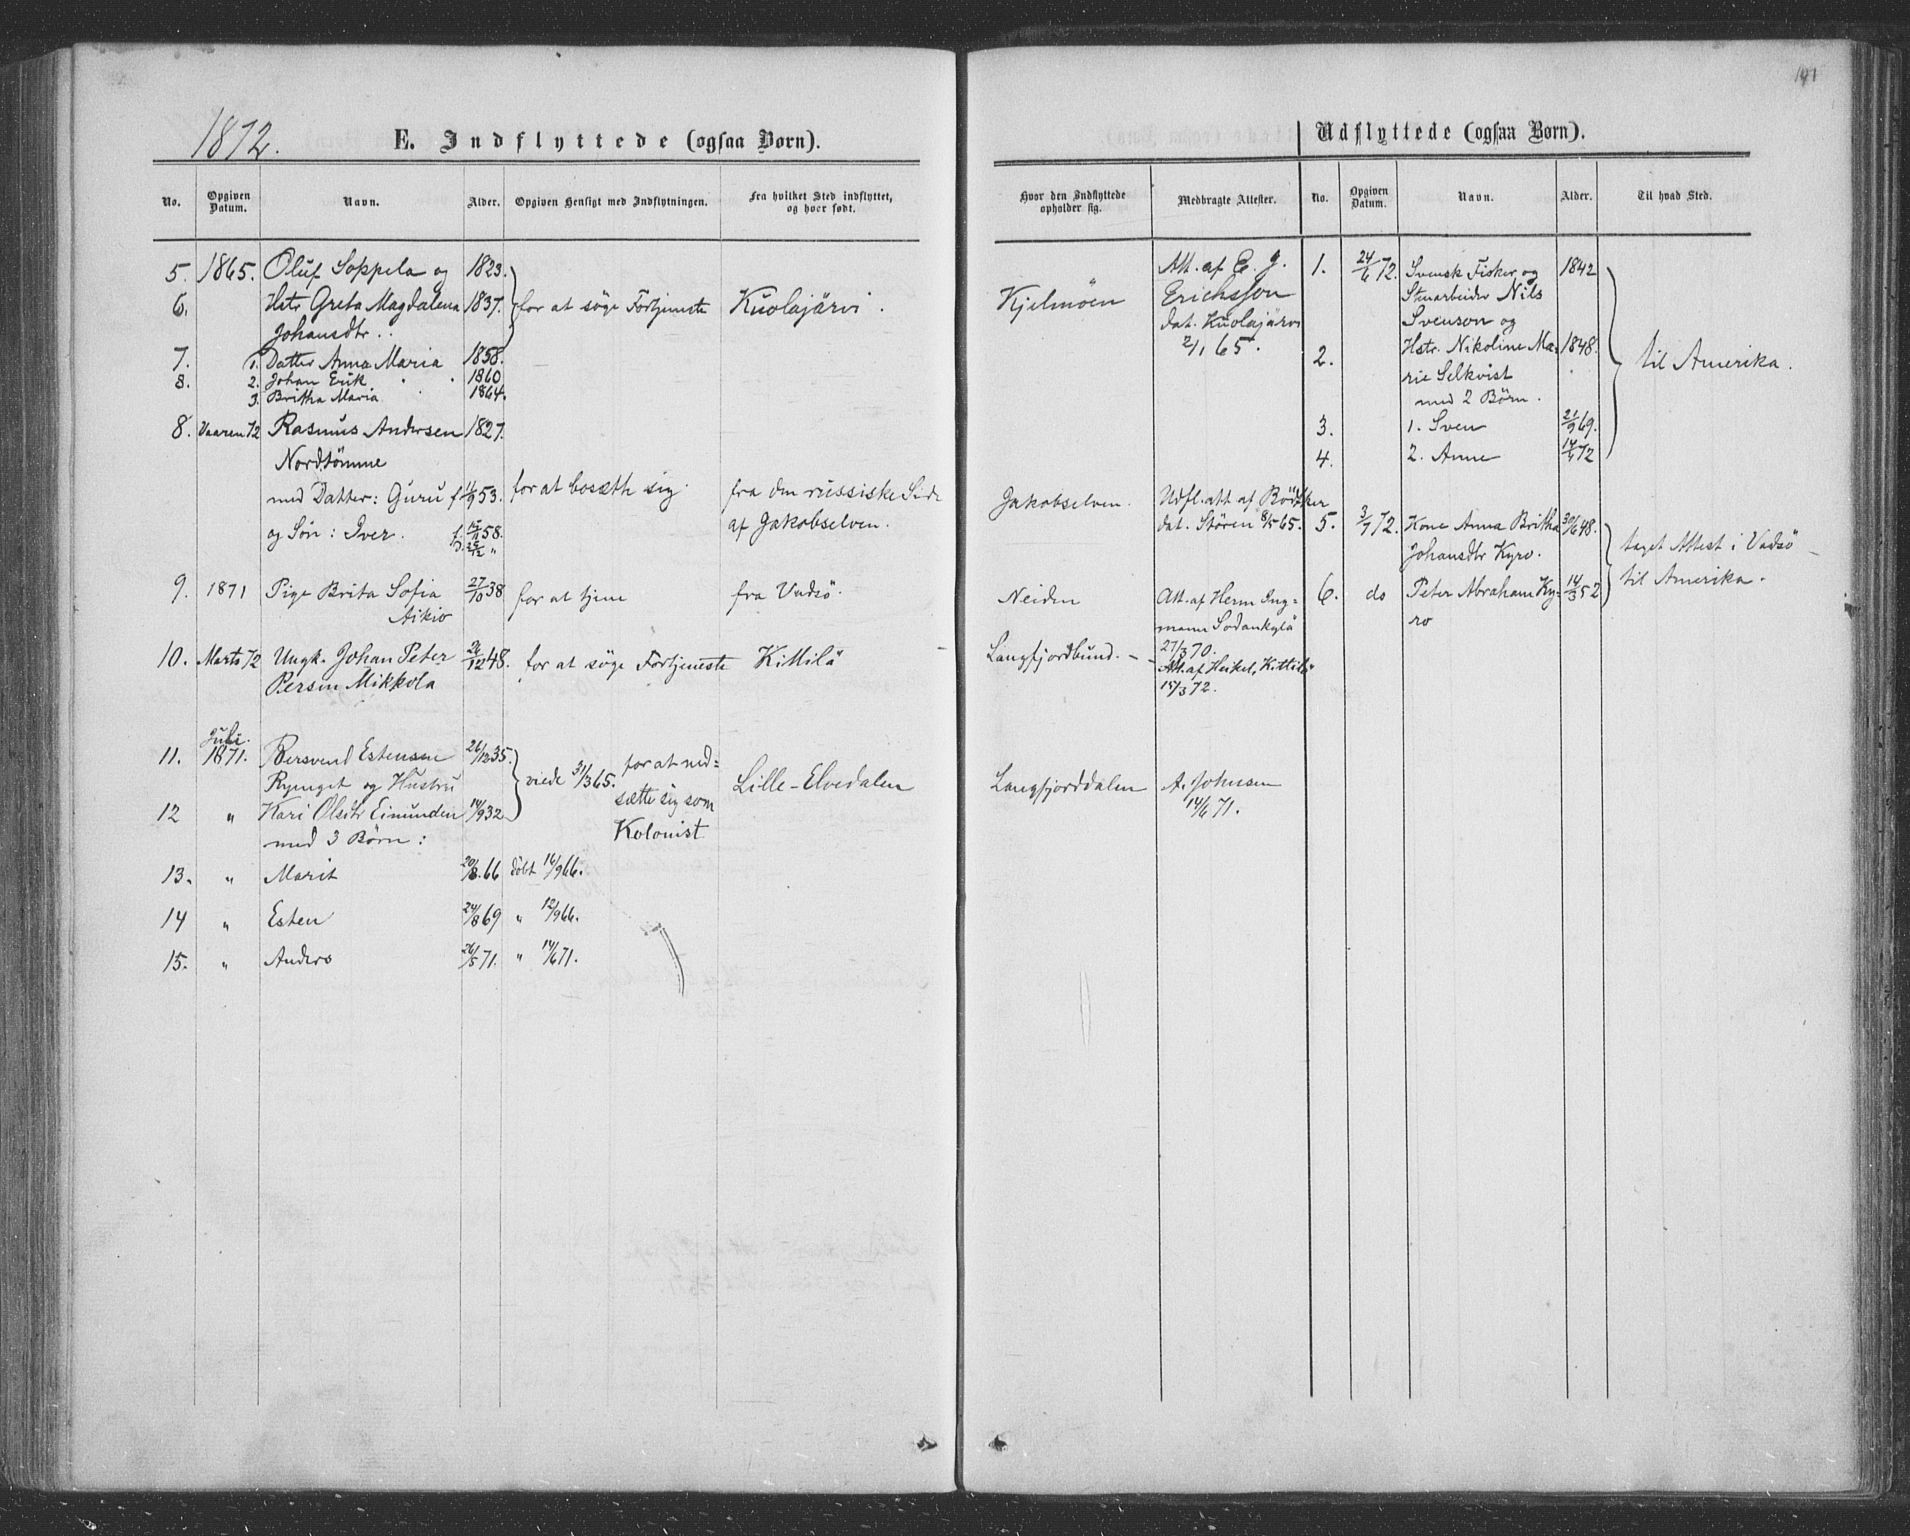 191
1872.
E. Indflyttede (ogsaa Børn).
Udflyttede (ogsaa Børn).
No.
Opgiven Datum.
Navn.
Alder.
Opgiven Hensigt med Indflytningen.
Fra hvilket Sted indflyttet, og hvor født.
Hvor den Indflyttede opholder sig.
Medbragte Attester.
No.
Opgiven Datum.
Navn.
Alder.
Til hvad Sted.
5. 1865. Oluf Soppela og 1823.
6. Hstr Greta Magdalena 1837. for at söge Fortjeneste Kuolajärvi. Kjelmöen
Johansdtr..
Att. af E. J.
Ericksson
dat. Kuolajärvi
2/1 65.
7. 1. Datter Anna Maria 1858.
8. 2. Johan Erik 1860
3. Britha Maria 1864.
8. Vaaren 72 Rasmus Andersen 1827.
Nordtömme
med Datter: Guru f. 11/9 53. for at bosætte sig. fra den russiske Side Jakobselven. Udfl. att af Bödtker
og Sön: Iver. f. 15/11 58. af Jakobselven. dat. Stören 8/5 65.
D. 25/12 "
9. 1871 Pige Brita Sofia 27/10 38 for at tjene fra Vadsö. Neiden Att. af Herm Ing=
Aikio
mann Sodankylä
27/3 70.
10. Marts 72 Ungk. Johan Peter 26/12 48. for at söge Fortjeneste Kittilä Langfjordbund. -
Persen Mikkola
Att. af Heikel, Kittilä
15/3 72.
Juli
11. 1871. Bersvend Estensen 26/12 35. viede 31/3 65. for at ned= Lille-Elvedalen Langfjorddalen A. Johnsen
Rynget og Hustru sætte sig som 14/6 71.
12 " Kari Olsdtr Eimunden 14/9 32. Kolonist
med 3 Börn:
13. " Marit 20/8 66 döbt 16/9 66.
14 " Esten 24/8 69 " 12/9 66.
15. " Anders 26/5 71. " 14/6 71.
1. 24/6 72. Svensk Fisker og 1842
Stenarbeider Nils
Svenson og
2. Hstr. Nikoline Ma= 1848. til Amerika.
rie Selkvist
med 2 Börn.
3. 1. Sven 21/9 69.
4. 2. Anne 14/4 72
5. 3/7 72. Kone Anna Britha 30/6 48. taget Attest i Vadsö -
Johansdtr Kyro.
til Amerika.
6. do Peter Abraham Ky= 14/3 52
ro